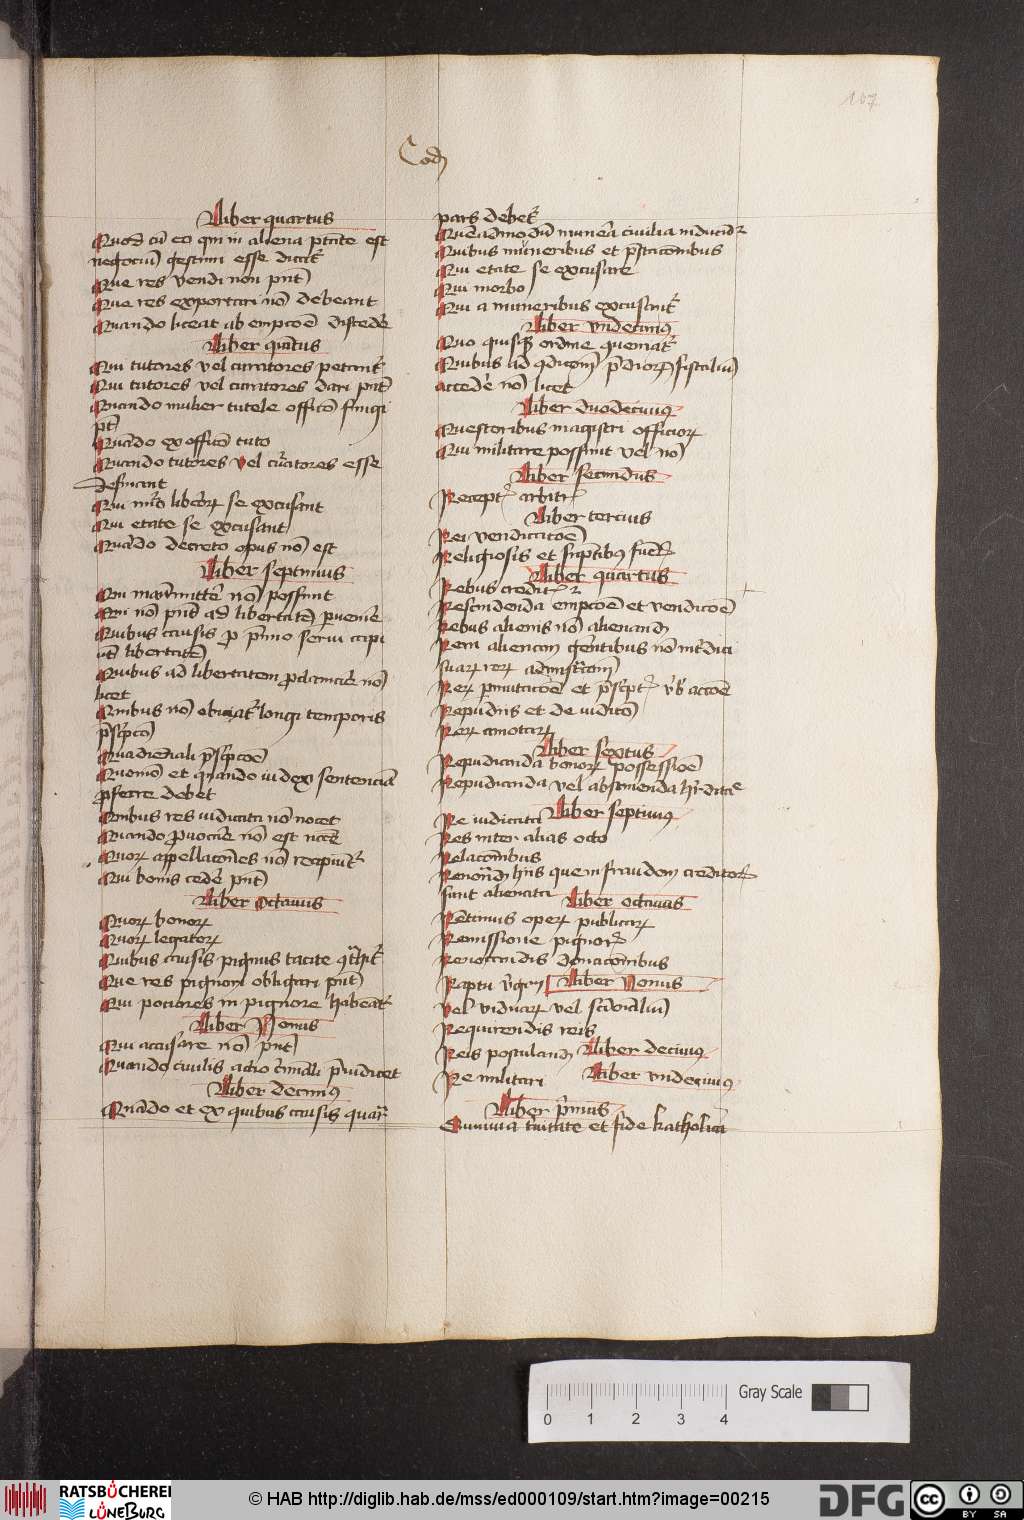 107
Cod
Liber quartus
Quod cū eo qui in aliena ptāte est
negociū gestum esse dicitr
Que res vendi non pnt
Que res exportari nō debeant
Quando liceat ab empcōē discedē
Liber quītus
Qui tutores vel curatores petant
Qui tutores vel curatores dari pnt
Quando mulier tutele officō fungi
pt
Quādo ex officō tuto
Quando tutores vel cūatores esse
desinant
Qui nūo liberoꝝ se excusant
Qui etate se excusant
Quādo decreto opus nō est
Liber septimus
Qui manumittē nō possunt
Qui nō pnt ad libertatē puenīe
Quibus causis pro pmio serui accipi
unt libertatē
Quibus ad libertatem proclamaē nō
licet
Quibus nō obicatr longi temporis
pscpco
Quadrienali pscpcoē
Quomō et quando iudex sentencia
proferre debet
Quibus res iudicata nō nocet
Quando prouocaē nō est necē
Quoꝝ appellacōes nō recipiutr
Qui bonis cedē pnt
Liber octauus
Quoꝝ bonoꝝ
Quoꝝ legatoꝝ
Quibus causis pignus tacite
Que res pignori obligari pnt
Qui potiores in pignore habeatr
Liber Nonus
Qui accusare nō pnt
Quando ciuilis actio cīmali piudicet
Liber decimꝰ
Quādo et ex quibus causis quar
pars debetr
Quēadmodū munera ciuilia indicūtr
Quibus muneribus et pstacōnibus
Qui etate se excusare
Qui morbo
Qui a muneribus excusantr
Liber vndecimꝰ
Quo quisqꝫ ordine
Quibus ad pdioꝝ fiscaliū
accedē nō licet
Liber duodecimꝰ
Questoribus magistri officioꝝ
Qui militare possunt vel nō
Liber secundus
Recept arbitr
Liber tercius
Rei vendicacōē
Religiosis et suptibꝰ funer
Liber quartus
Rebus creditis
Rescindenda empcoē et vendicoē
Rebus alienis nō alienand
Rem alienam gerentibus nō intrdici
suaꝝ reꝝ admistracōem
Reꝝ pmutacōē et pscpt vbis accoē
Repudiis et de iudicō
Reꝝ amotaꝝ
Liber sextus
Repudianda bonoꝝ possessioē
Repudianda vel abstinenda hrditate
Re iudicata Liber septimꝰ
Res inter alias acto
Relacōnibus
Reuocand hiis que in fraudem creditoꝝ
sunt alienata Liber octauus
Retimus operꝝ publicaꝝ
Remissione pignoꝝ
Reuocandis donacōnibus
Raptu vrginū Liber Nonus
vel viduaꝝ vel scimonaliū
Requirendis reis
Reis postuland Liber decimꝰ
Re militari Liber vndecimꝰ
Liber pmus
Summa tinitate et fide katholica
0 1 2 3 4
Gray Scale
RATSBÜCHEREI
LÜNEBURG
© HAB http://diglib.hab.de/mss/ed000109/start.htm?image=00215
DFG
cc
BY SA